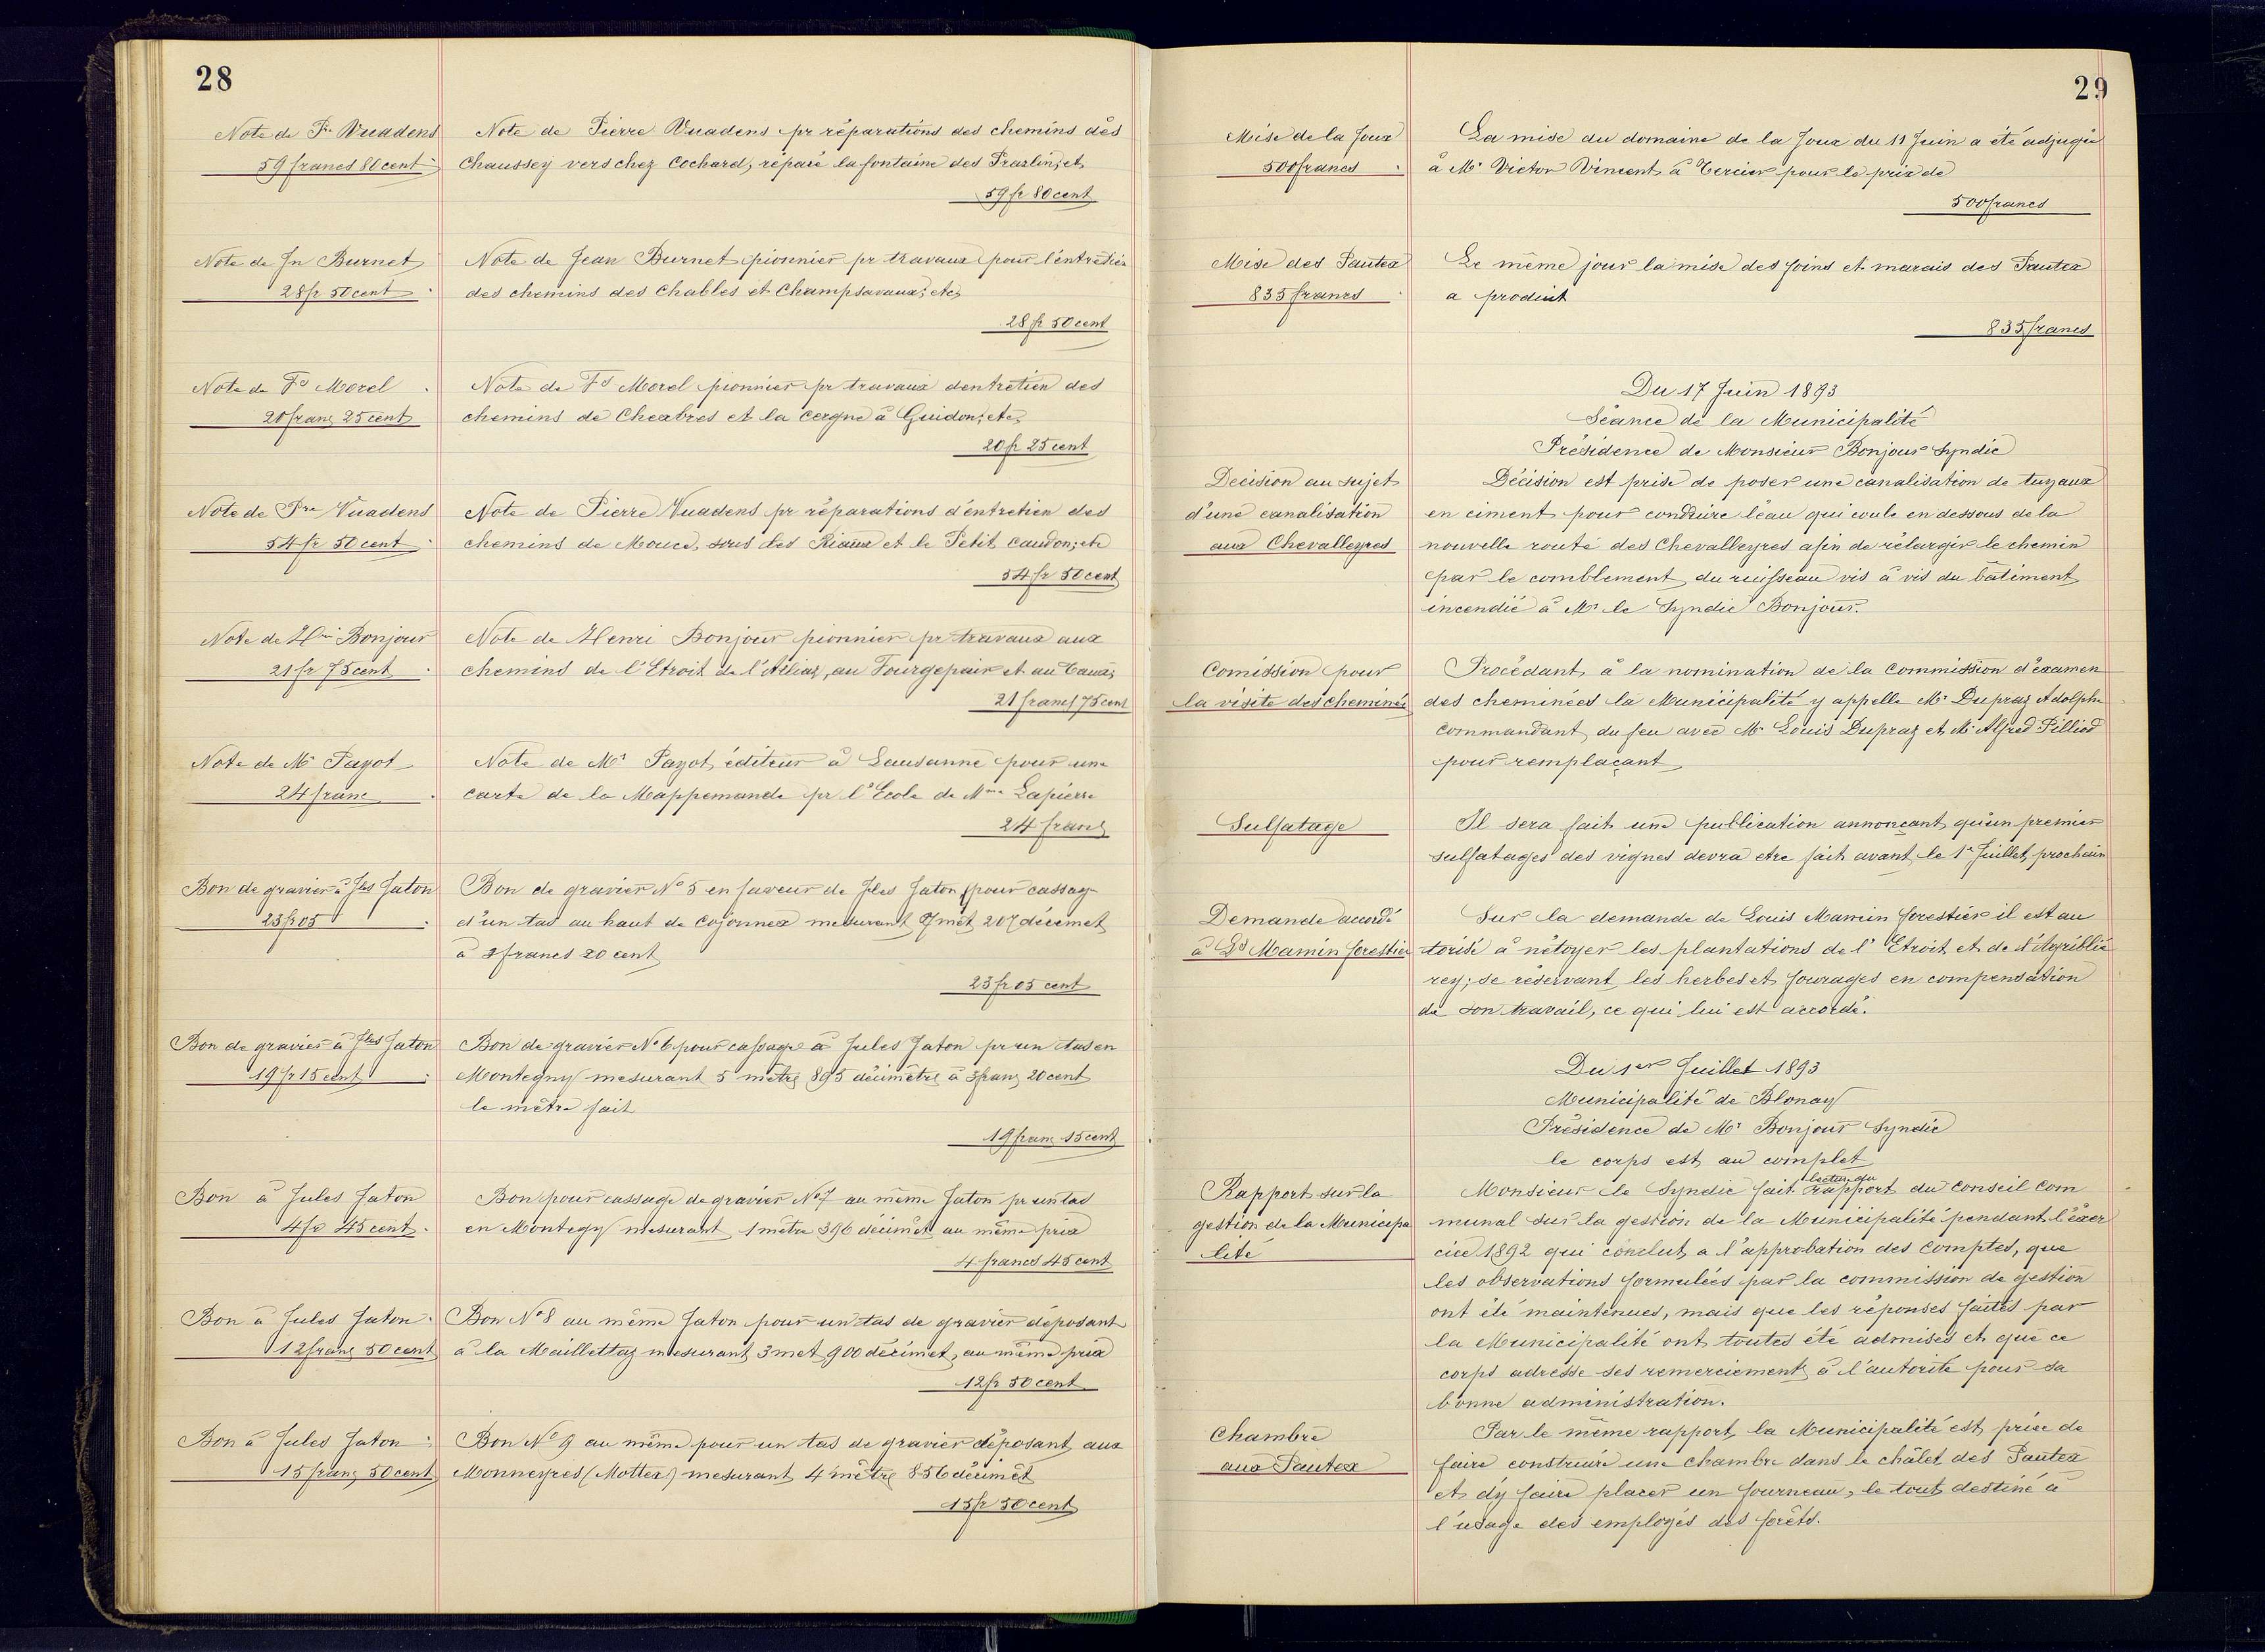 28
Note de Pre Vuadens
59 francs 80 cent
Note de Pierre Vuadens pr réparations des chemins dès
Chaussey vers chez Cochard, réparé la fontaine des Prazlin; etc
59 fr 80 cent
Note de Jn Burnet
28 fr 50 cent
Note de Jean Burnet pionnier pr travaux pour l'entretien
des chemins des Chables et Champsavaux; etc
28 fr 50 cent
Note de Fs Morel
20 franc 25 cent
Note de Fs Morel pionnier pr travaux dentretien des
chemins de Chexbres et la cergne à Guidon; etc
20 fr 25 cent
Note de Pre Vuadens
54 fr 50 cent
Note de Pierre Vuadens pr réparations d'entretien des
chemins de Mouce, sous les Riaux et le Petit caudon; etc
54 fr 50 cent
Note de Hri Bonjour
21 fr 75 cent
Note de Henri Bonjour pionnier pr travaux aux
chemins de l'Etroit de l'Alliaz, au Fourgepair et au
21 francs 75 cent
Note de Mr Payot
24 franc
Note de Mr Payot, éditeur à Lausanne pour une
carte de la Mappemande pr l'Ecole de Mme Lapierre
24 franc
Bon de gravier à Jles Jaton
23 fr 05
Bon de gravier No 5 en faveur de Jles Jaton pour cassag
d'un tas au haut de Cojonnex mesurant 7 mèt 207 décimet
à 3 francs 20 cent
23 fr 05 cent
Bon de gravier à Jles Jaton
19 fr 15 cent
Bon de gravier No 6 pour cassage à Jules Jaton pr un tas en
Montegny mesurant 5 mètre 895 décimètre à 3 franc 20 cent
le mètre fait
19 franc 15 cent
Bon à Jules Jaton
4 fr 45 cent
Bon pour cassage de gravier No 7 au même Jaton pr un tas
en Montegy mesurant 1 mètre 396 décimèt au même prix
4 francs 45 cent
Bon à Jules Jaton
12 franc 50 cent
Bon No 8 au même Jaton pour un tas de gravier déposant
à la Maillettaz mesurant 3 met 900 décimet, au même prix
12 fr 50 cent
Bon à Jules Jaton
15 franc 50 cent
Bon No 9 au même pour un tas de gravier déposant aux
Monneyres (Mottex) mesurant 4 mètre 856 décimèt
15 fr 50 cent
29
Mise de la Joux
500 francs
La mise du domaine de la Joux du 11 Juin a été adjugée
à Mr Victor Vincent à Tercier pour le prix de
500 francs
Mise des Pautex
835 francs
Le même jour la mise des foins et marais des Pautex
a produit
835 francs
Du 17 Juin 1893
Séance de la Municipalité
Présidence de Monsieur Bonjour Syndic
Decision au sujet
d'une canalisation
aux Chevalleyres
Décision est prise de poser une canalisation de tuyaux
en ciment pour conduire l'eau qui coule en dessous de la
nouvelle route des Chevalleyres afin de rélargir le chemin
par le comblement du ruisseau vis à vis du bâtiment
incendié à Mr le Syndic Bonjour.
Comission pour
la visite des cheminées
Procédant à la nomination de la Commission d'examen
des cheminées la Municipalité y appelle Mr Dupraz Adolphe
commandant du feu avec Mr Louis Dupraz et Mr Alfred Pilliod
pour remplaçant
Sulfatage
Il sera fait une publication annonçant qu'un premier
sulfatages des vignes devra etre fait avant le 1er Juillet prochain
Demande accordé
à Ls Mamin forestier
Sur la demande de Louis Mamin forestier il est au
torisé à nétoyer les plantations de l'Etroit et de
rey; se réservant les herbes et fourages en compensation
de son travail, ce qui lui est accordé.
Du 1er Juillet 1893
Municipalité de Blonay
Présidence de Mr Bonjour Syndic
le corps est au complet
Rapport sur la
gestion de la Municipa
lité
lecture du
Monsieur le Syndic fait rapport du conseil com
munal sur la gestion de la Municipalité pendant l'éxer
cice 1892 qui conclut a l'approbation des comptes, que
les observations formulées par la commission de gestion
ont été maintenues, mais que les réponses faites par
la Municipalité ont toutes été admises et que ce
corps adresse ses remerciement à l'autorité pour sa
bonne administration.
Chambre
aux Pautex
Par le même rapport la Municipalité est priée de
faire construire une chambre dans le châlet des Pautex
et d'y faire placer un fourneau, le tout destiné à
l'usage des employés des forêts.